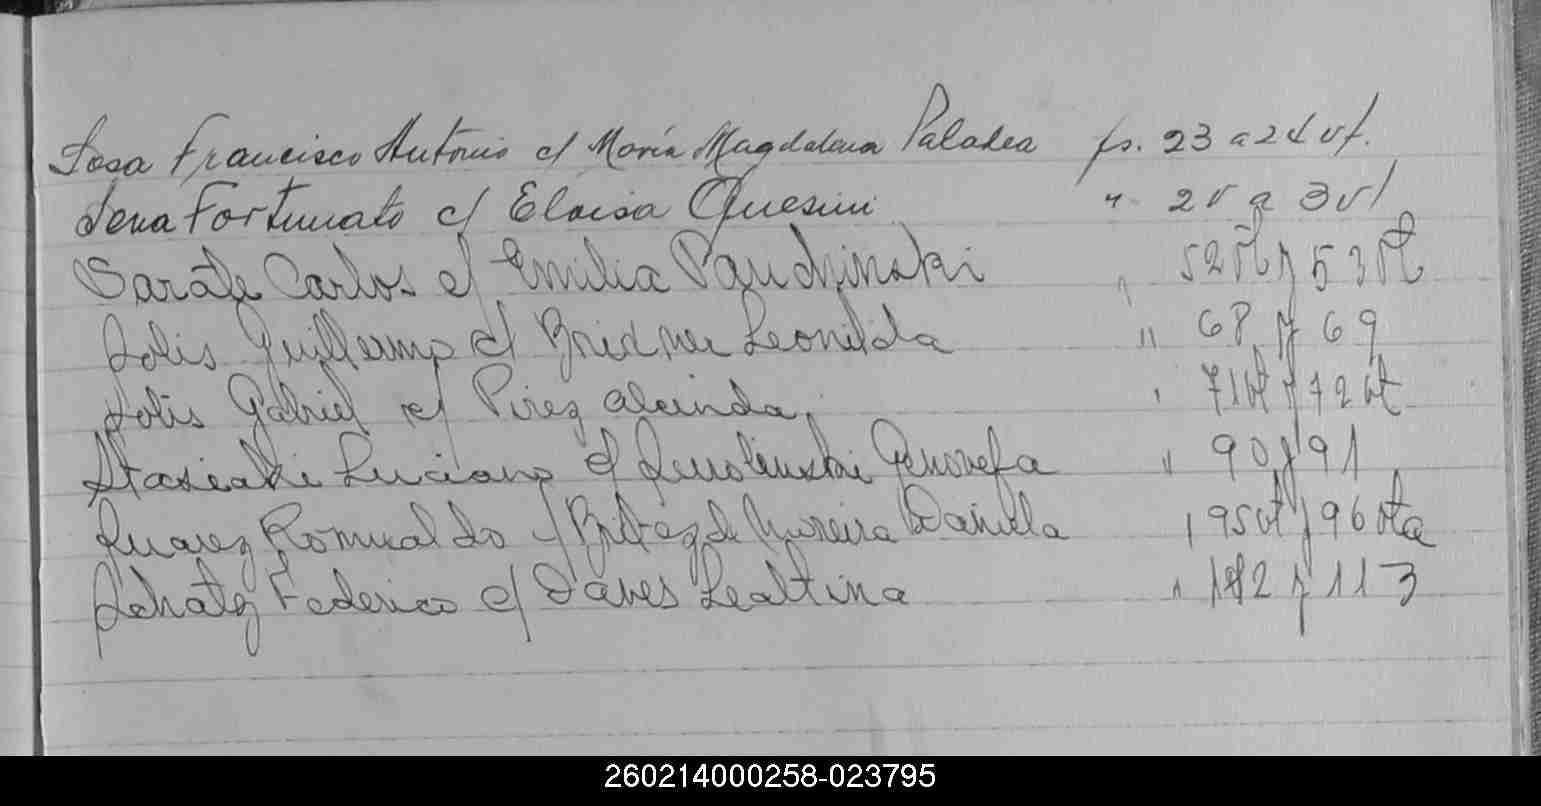 Sosa Francisco Antonio c/ María Magdalena Paladea fs. 23 a 24 vt.
Sena Fortunato c/ Eloisa Quesini " 2v a 3v/
Sarate Carlos c/ Emilia Paudzinski " 52 vt y 53 vt
Solis Guillermo c/ Leonilda " 68 y 69
Solis Gabriel c/ Pirez alcinda, " 71vt y 72 vt
Luciano c/ Genovefa " 90 y 91
Suarez Romualdo c/ Britez de Moreira Daniela " 95vt y 96 vta
Federico c/ Leallina " 112 y 113
260214000258-023795